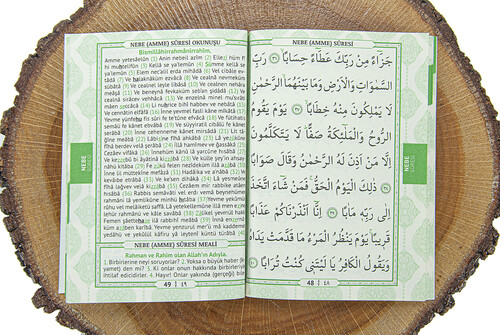 NEBE (AMME) SÛRESİ
جَزَٓاءً مِنْ رَبِّكَ عَطَٓاءً حِسَابًاۙ ﴿٣٦﴾ رَبِّ
السَّمٰوَاتِ وَالْاَرْضِ وَمَا بَيْنَهُمَا الرَّحْمٰنِ
لَا يَمْلِكُونَ مِنْهُ خِطَابًاۚ ﴿٣٧﴾ يَوْمَ يَقُومُ
الرُّوحُ وَالْمَلٰٓئِكَةُ صَفًّاۜ لَا يَتَكَلَّمُونَ
اِلَّا مَنْ اَذِنَ لَهُ الرَّحْمٰنُ وَقَالَ صَوَابًا
﴿٣٨﴾ ذٰلِكَ الْيَوْمُ الْحَقُّۚ فَمَنْ شَٓاءَ اتَّخَذَ
اِلٰى رَبِّه۪ مَاٰبًا ﴿٣٩﴾ اِنَّٓا اَنْذَرْنَاكُمْ عَذَابًا
قَر۪يبًاۚ يَوْمَ يَنْظُرُ الْمَرْءُ مَا قَدَّمَتْ يَدَاهُ
وَيَقُولُ الْكَافِرُ يَا لَيْتَن۪ي كُنْتُ تُرَابًا ﴿٤٠﴾
48 ٤٨
NEBE
NEBE (AMME) SÛRESİ OKUNUŞU
Bismillâhirrahmânirrahîm.
Amme yetesâelûn (1) Anin nebeil azîm (2) Ellezî hüm fî
hi muhtelifûn (3) Kellâ se ya'lemûn (4) Sümme kellâ se
ya'lemûn (5) Elem nec'alil erda mihâdâ (6) Vel cibâle ev
tâdâ (7) Ve halaknâküm ezvâcâ (8) Ve cealnâ nevmeküm
sübâtâ (9) Ve cealnel leyle libâsâ (10) Ve cealnen nehâra
meâşâ (11) Ve beneynâ fevkaküm seb'an şidâdâ (12) Ve
cealnâ sirâcev vehhâcâ (13) Ve enzelnâ minel mu'sirâti
mâen seccâcâ (14) Li nuhrice bihî habbev ve nebâtâ (15)
Ve cennâtin elfâfâ (16) İnne yevmel fasli kâne mîkâtâ (17)
Yevme yünfehu fis sûri fe te'tûne efvâcâ (18) Ve fütihatis
semâü fe kânet ebvâbâ (19) Ve süyyiratil cibâlü fe kânet
serâbâ (20) İnne cehenneme kânet mirsâdâ (21) Lit tâ
ğîne meâbâ (22) Lâbisîne fîhâ ahkâbâ (23) Lâ yezûkûne
fîhâ berdev velâ şerâbâ (24) İllâ hamîmev ve ğassâkâ (25)
Cezâev vifâkâ (26) İnnehüm kânû lâ yercûne hisâbâ (27)
Ve kezzebû bi âyâtinâ kizzâbâ (28) Ve külle şey'in ahsay
nâhü kitâbâ (29) Fe zûkû felen nezîdeküm illâ azâbâ (30)
İnne lil müttekîne mefâzâ (31) Hadâika ve a'nâbâ (32) Ve
kevâibe etrâbâ (33) Ve ke'sen dihâkâ (34) Lâ yesmeûne
fîhâ lağvev velâ kizzâbâ (35) Cezâem mir rabbike atâen
hisâbâ (36) Rabbis semâvâti vel erdı vemâ beynehümer
rahmâni lâ yemlikûne minhü hıtâbâ (37) Yevme yekûmür
rûhu vel melâiketü saffâ. Lâ yetekellemûne illâ men ezine
lehür rahmânü ve kâle savâbâ (38) Zâlikel yevmül hakk.
Femen şâettehaze ilâ rabbihî meâbâ (39) İnnâ enzernâ
küm azâben karîbâ. Yevme yenzurul mer'ü mâ kaddemet
yedâhü ve yekûlül kâfiru yâ leytenî küntü türâbâ (40)
NEBE (AMME) SÛRESİ MEALİ
Rahman ve Rahîm olan Allah'ın Adıyla.
1. Birbirlerine neyi soruyorlar? 2. Yoksa o büyük haber (kı
yamet) den mi? 3. Ki onlar onun hakkında birbirleriyle
ihtilaf edicidirler. 4. Hayır! Onlar yakında (gerçeği) bi
49 ٤٩
NEBE